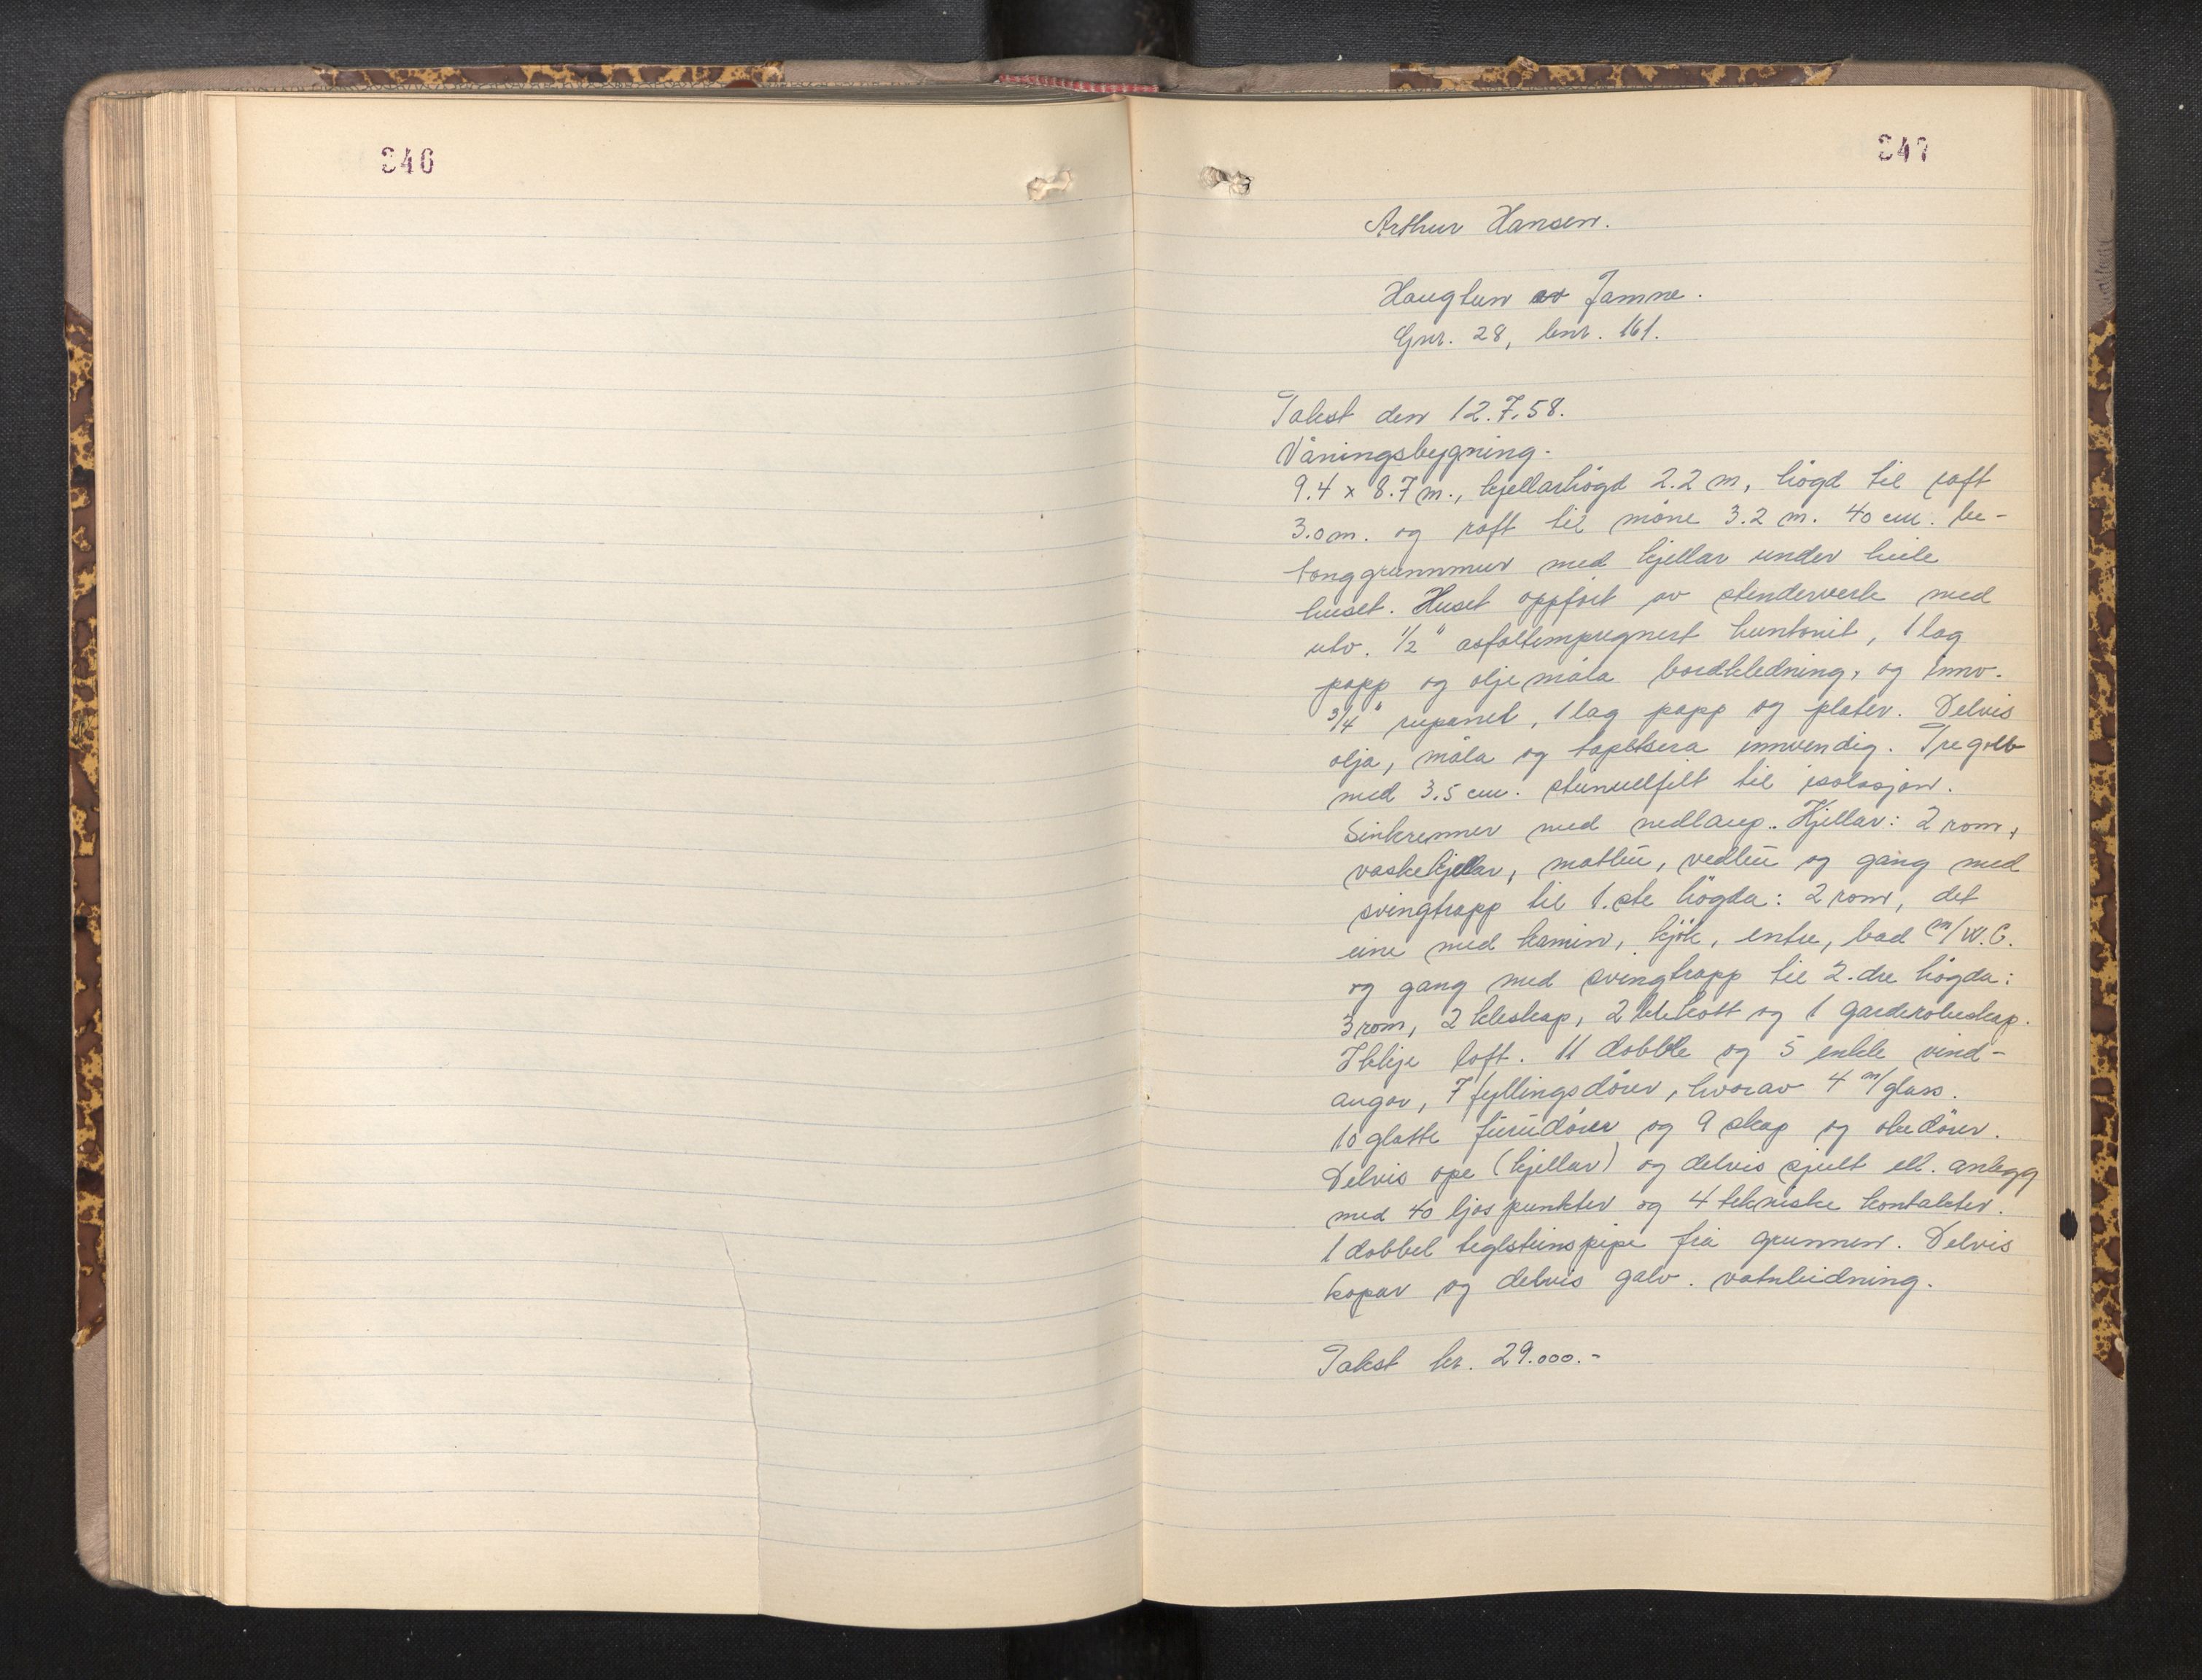 346
347
Arthur Hansen.
Haugtun av Jamne.
Gnr. 28, bnr. 161.
Takst den 12.7.58.
Våningsbygning.
9.4 x 8.7 m., kjellarhögd 2.2 m, högd til raft
3.0 m. og raft til möne 3.2 m. 40 cm. be-
tonggrunnmur med kjellar under heile
huset. Huset oppfört av stenderverk med
utv. 1/2" asfaltimpregnert huntonit, 1 lag
papp og olje måla bordkledning, og innv.
3/4" rupanel, 1 lag papp og plater. Delvis
olja, måla og tapetsera innvendig. Tregolv
med 3.5 cm. steinullfilt til isolasjon.
Sinkrenner med nedlaup. Kjellar: 2 rom,
vaskekjellar, matbu, vedbu og gang med
svingtrapp til 1.ste högda: 2 rom, det
eine med kamin, kjök, entre, bad m/W.C.
og gang med svingtrapp til 2.dre högda:
3 rom, 2 kleskap, 2 klekott og 1 garderobeskap.
Ikkje loft. 11 dobble og 5 enkle vind-
augor, 7 fyllingsdörer, hvorav 4 m/glass.
10 glatte furudörer og 9 skap og obedörer.
Delvis ope (kjellar) og delvis sjult ell. anlegg
med 40 ljospunkter og 4 tekniske kontakter.
1 dobbel teglsteinspipe frå grunnen. Delvis
kopar og delvis galv. vatnleidning.
Takst kr. 29.000.-